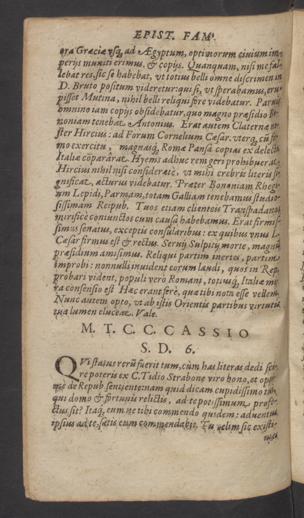 EPIST. FAM.
ora Græciæ vsq; ad Ægyptum, optimorum ciuium im-
perijs muniti erimus, & copijs. Quanquam, nisi me fal-
lebat res, sic se habebat, vt totius belli omne discrimen in
D. Bruto positum videretur: qui si, vt sperabamus, eru-
pisset Mutina, nihil belli reliqui fore videbatur. Paruis
omnino iam copijs obsidebatur, quo magno præsidio Bo-
noniam tenebat Antonius. Erat autem Claternæ no-
ster Hircius: ad Forum Cornelium Cæsar. vterq; cū fir-
mo exercitu, magnasq; Romæ Pansa copias ex delectu
Italiæ cōpararat. Hyems adhuc rem geri prohibuerat.
Hircius nihil nisi consideratè, vt mihi crebris literis si-
gnificat, acturus videbatur. Præter Bononiam, Rhegiū
um Lepidi, Parmam, totam Galliam tenebamus studio-
sissimam Reipub. Tuos etiam clientes Transpadanos
mirificè coniunctos cum causa habebamus. Erat firmis-
simus senatus, exceptis consularibus: ex quibus vnus L.
Cæsar firmus est & rectus. Seruij Sulpitij morte, magnū
præsidium amisimus. Reliqui partim inertes, partim
improbi: nonnulli inuident eorum laudi, quos in Rep.
probari vident. populi verò Romani, totiusq; Italiæ mi-
ra consensio est. Hæc erant ferè, quæ tibi nota esse vellem.
Nunc autem opto, vt ab istis Orientis partibus virtutis
tuæ lumen eluceat. Vale.
M. T. C. C. CASSIO
S. D. 6.
QVi status rerū fuerit tum, cùm has literas dedi sci-
re poteris ex C. Tidio Strabone viro bono, et opti-
mè de Repub. sentiente: nam quid dicam cupidissimo tui,
qui domo & fortunis relictis, ad te potissimum profe-
ctus sit? Itaq; eum ne tibi commendo quidem: aduentus
ipsius ad te, satis eum commendabit. Tu velim sic existi-